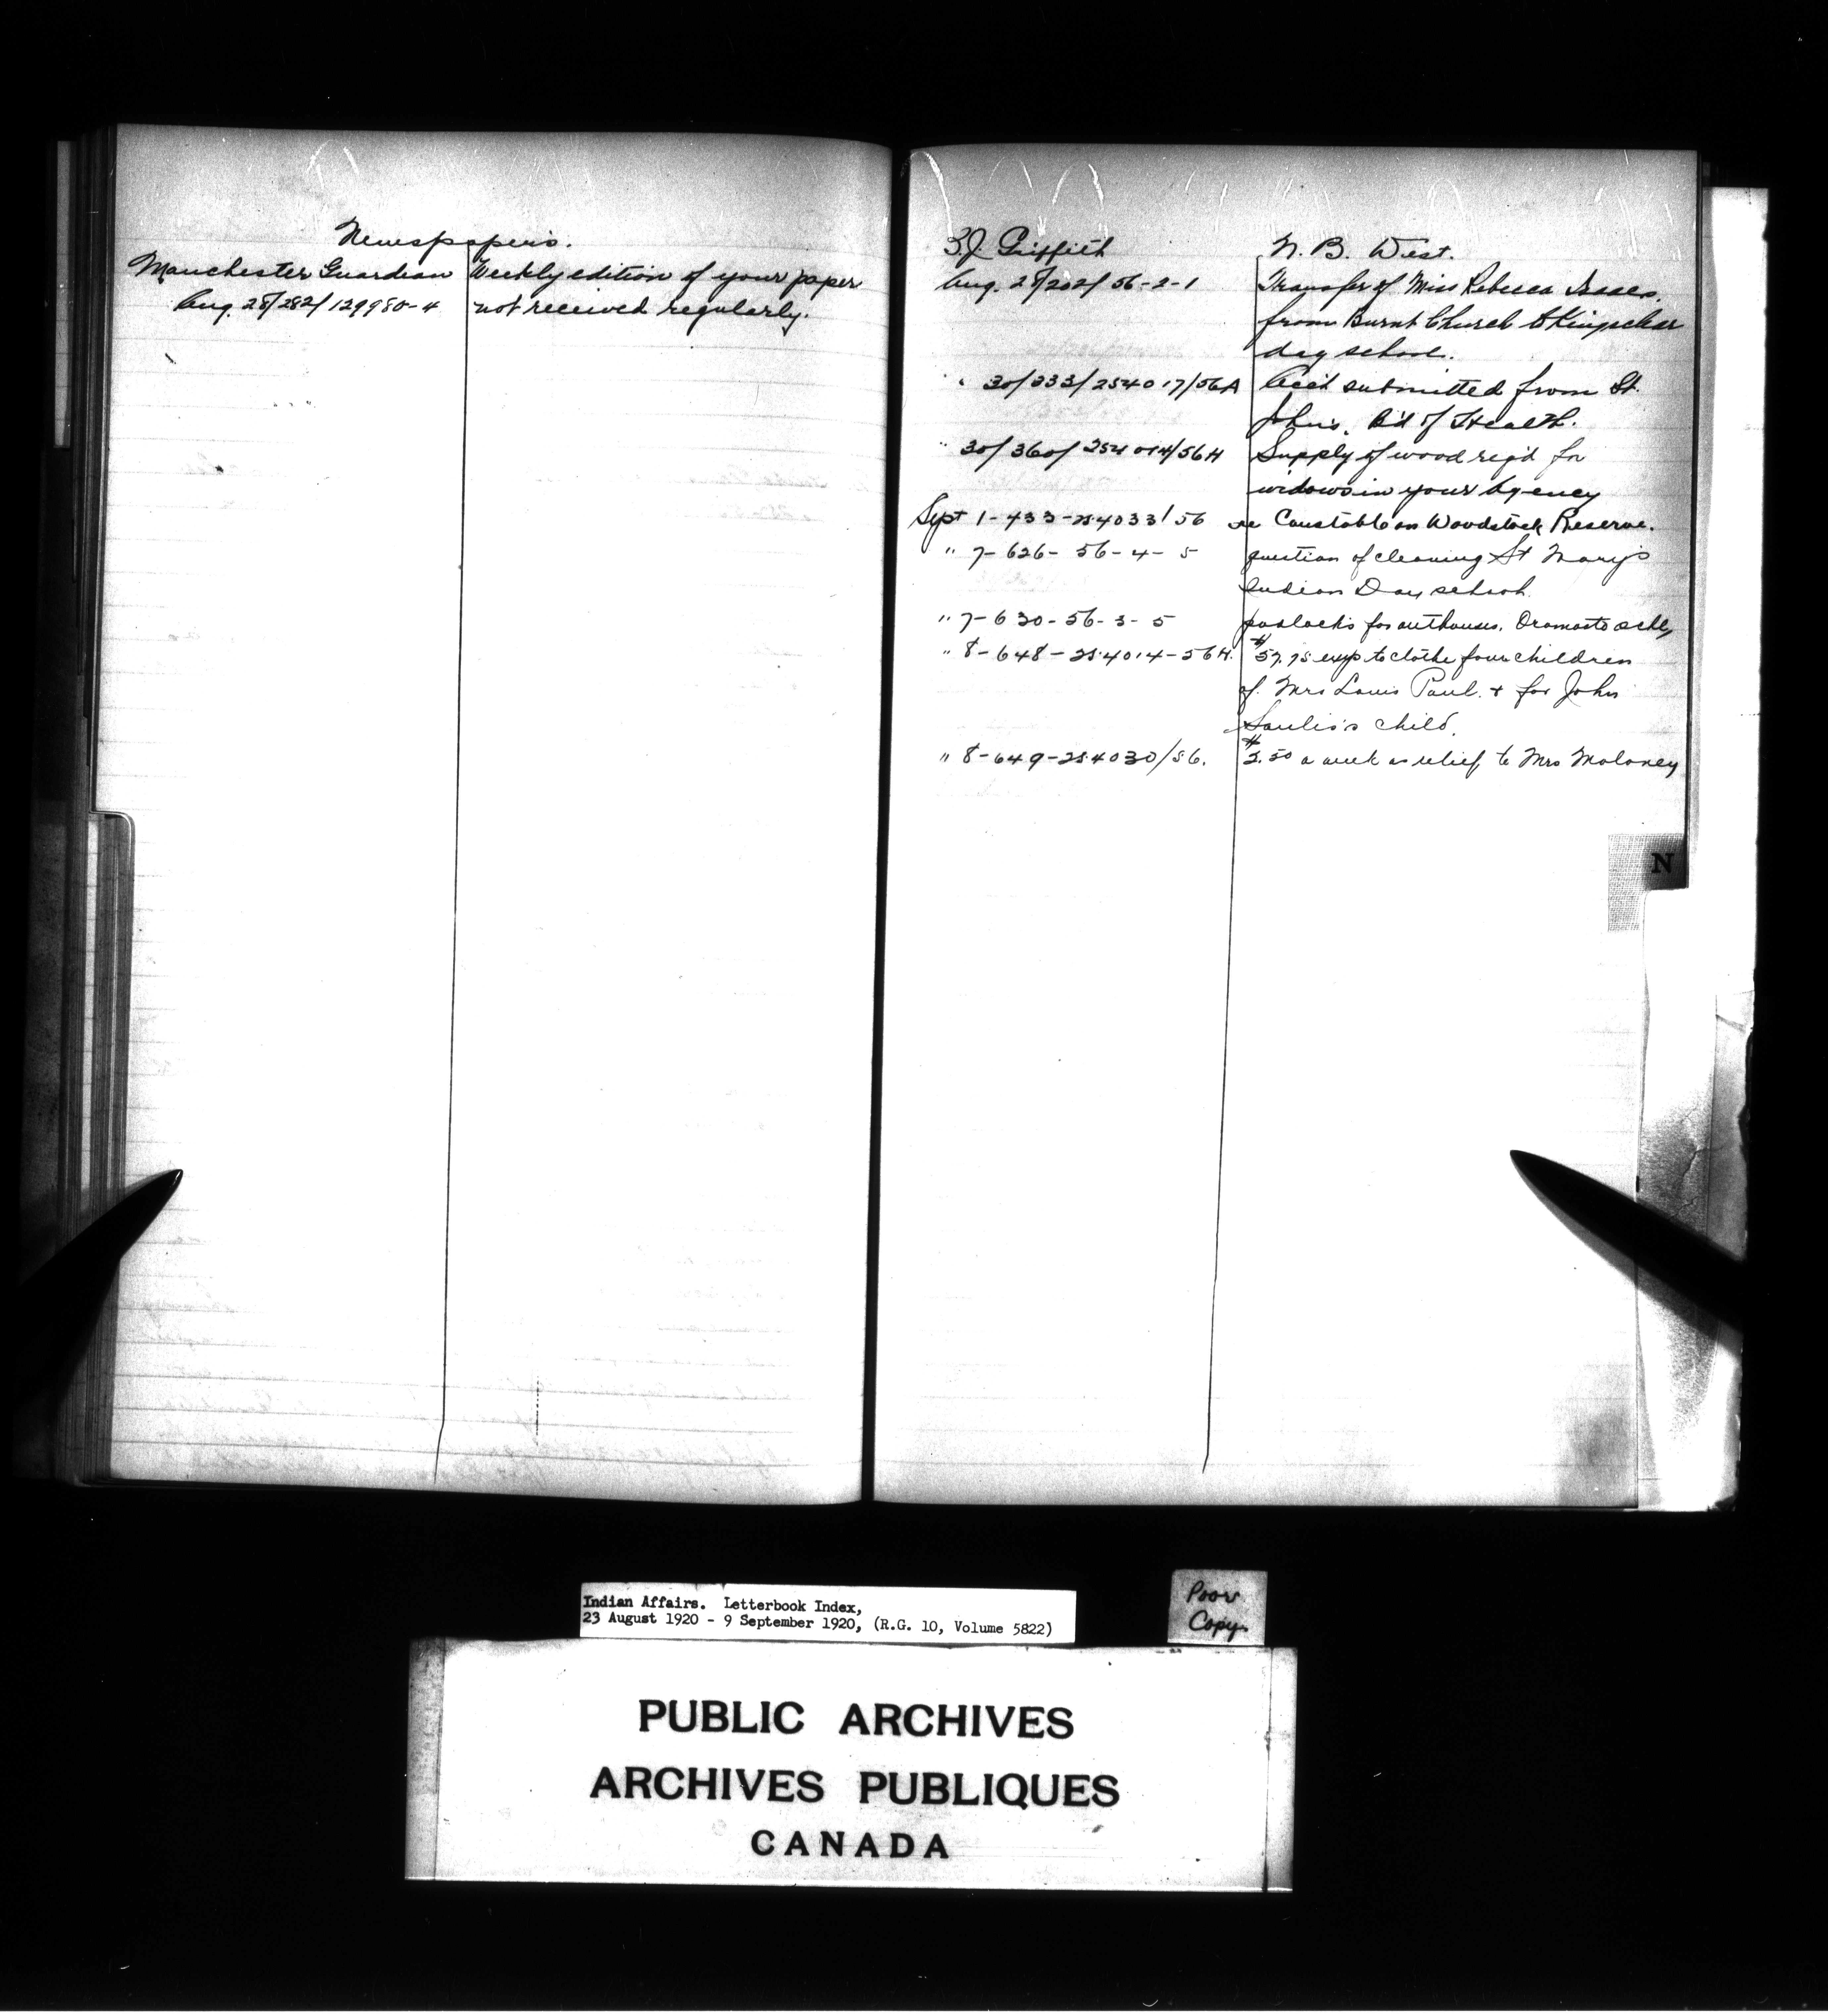 Newspapers.
Manchester Guardian Weekly edition of your paper
Aug. 28/282/129980-4 not received regularly.
Griffith N. B. West.
Aug. 28/202/56-2-1 Transfer of Miss Rebecca Isaacs.
from Burnt Church to Kingsclear
day school.
" 30/333/254017/56A Acc't submitted from St.
John's. B'd of Health.
" 30/360/254014/56H Supply of wood req'd for
widows in your Agency
Sept 1-433-254033/56 re Constable on Woodstock Reserve.
" 7-626-56-4-5 question of cleaning St Mary's
Indian Day school.
" 7-630-56-3-5 padlocks for outhouses. Oromocto
" 8-648-254014-56H. $57.75 exp to clothe four children
of Mrs Louis Paul. + for John
child.
" 8-649-254030/56. a week as relief to Mrs Maloney
N
Indian Affairs. Letterbook Index,
23 August 1920 - 9 September 1920, (R.G. 10, Volume 5822)
Poor
Copy.
PUBLIC ARCHIVES
ARCHIVES PUBLIQUES
CANADA